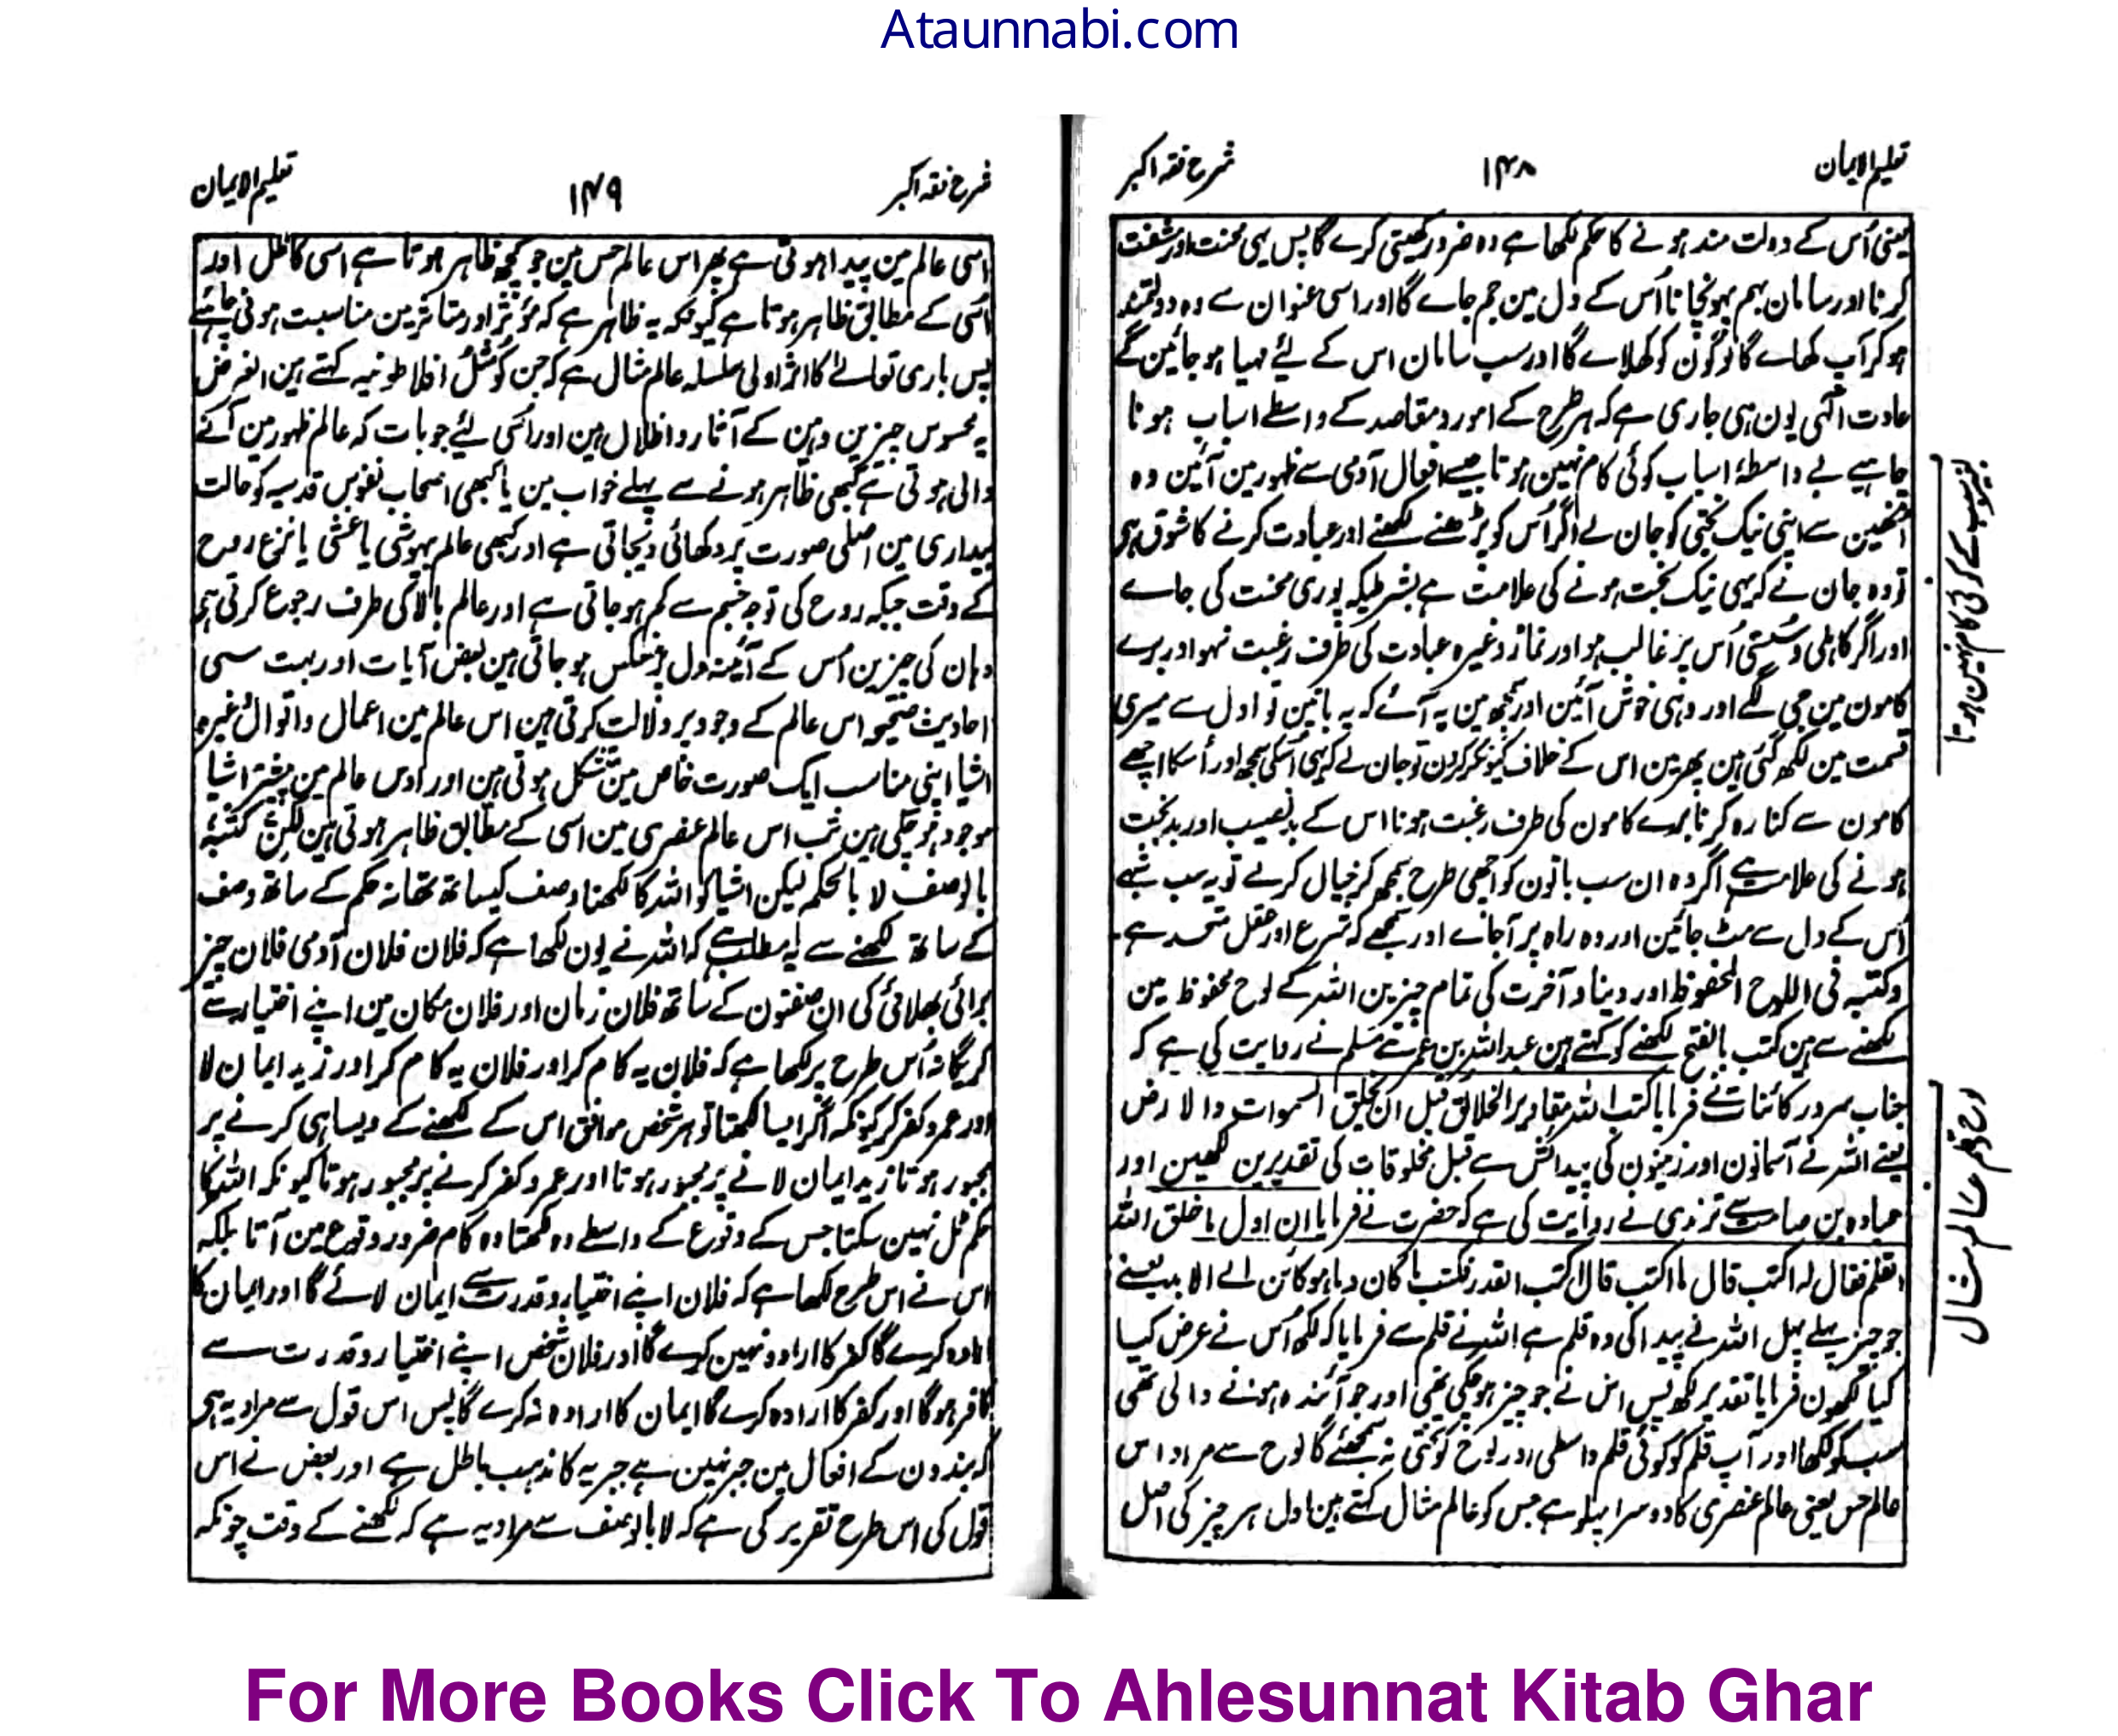 Ataunnabi.com
تعلیم الایمان ۱۴۸ شرح فقہ اکبر
یعنی اُس کے دولت مند ہونے کا حکم لکھا ہے وہ ضرور کھیتی کرے گا پس یہی محنت اور مشقت
کرنا اور سامان بہم پہونچانا اُس کے دل مین جم جاے گا اور اسی عنوان سے وہ دولتمند
ہو کر آپ کھاے گا لوگون کو کھلاے گا اور سب سامان اس کے لیئے مہیا ہو جائین گے
عادت الٰہی یون ہی جاری ہے کہ ہر طرح کے امور و مقاصد کے واسطے اسباب ہونا
چاہیے بے واسطۂ اسباب کوئی کام نہین ہوتا جیسے افعال آدمی سے ظہور مین آئین وہ
اُنھین سے اپنی نیک بختی کو جان لے اگر اُس کو پڑھنے لکھنے اور عبادت کرنے کا شوق ہی
تو وہ جان لے کہ یہی نیک بخت ہونے کی علامت ہے بشرطیکہ پوری محنت کی جاے
اور اگر کاہلی و سُستی اُس پر غالب ہو اور نماز وغیرہ عبادت کی طرف رغبت نہو اور برے
کامون مین جی لگے اور وہی خوش آئین اور سمجھ مین یہ آئے کہ یہ باتین تو اول سے میری
قسمت مین لکھ گئی ہین پھر مین اس کے خلاف کیونکر کرون تو جان لے کہ یہی اُسکی سمجھ اور اُسکا اچھے
کامون سے کنارہ کرنا برے کامون کی طرف رغبت ہونا اس کے بدنصیب اور بدبخت
ہونے کی علامت ہے اگر وہ ان سب باتون کو اچھی طرح سمجھ کر خیال کرلے تو یہ سب شبہے
اُس کے دل سے مٹ جائین اور وہ راہ پر آجاے اور سمجھے کہ شرع اور عقل متحد ہے۔
وکتبہ فی اللوح المحفوظ اور دنیا و آخرت کی تمام چیزین اللہ کے لوح محفوظ مین
لکھنے سے ہین کتب بالفتح لکھنے کو کہتے ہین عبداللہ بن عمر سے مسلم نے روایت کی ہے کہ
جناب سرور کائنات نے فرمایا کتب اللہ مقادیر الخلائق قبل ان یخلق السموات والارض
یعنے اللہ نے آسمانون اور زمینون کی پیدائش سے قبل مخلوقات کی تقدیرین لکھین اور
عبادہ بن صامت سے ترمذی نے روایت کی ہے کہ حضرت نے فرمایا ان اول ما خلق اللہ
القلم فقال لہ اکتب قال ما اکتب قال اکتب القدر فکتب ما کان و ما ہو کائن الے الابد یعنے
جو چیز پہلے پہل اللہ نے پیدا کی وہ قلم ہے اللہ نے قلم سے فرمایا کہ لکھ اُس نے عرض کیا
کیا لکھون فرمایا تقدیر لکھ پس اس نے جو چیز ہو چکی تھی اور جو آئندہ ہونے والی تھی
سب کو لکھا اور آپ قلم کو کوئی قلم واسطی اور لوح کو تختی نہ سمجھئے گا لوح سے مراد اس
عالم حس یعنی عالم عنصری کا دوسرا پہلو ہے جس کو عالم مثال کہتے ہین اول ہر چیز کی اصل
بغیر سبب کے کوئی کام نہین ہوتا
لوح و قلم و عالم مثال
شرح فقہ اکبر ۱۴۹ تعلیم الایمان
اسی عالم مین پیدا ہوتی ہے پھر اس عالم حس مین جو کچھ ظاہر ہوتا ہے اسی کا ظل اور
اُسی کے مطابق ظاہر ہوتا ہے کیونکہ یہ ظاہر ہے کہ مؤثر اور متاثر مین مناسبت ہونی چاہئے
پس باری تعالےٰ کا اثر اولی سلسلہ عالم مثال ہے کہ جن کو مُثُل افلاطونیہ کہتے ہین الغرض
یہ محسوس چیزین وہین کے آثار و اظلال ہین اور اسی لیئے جو بات کہ عالم ظہور مین آنے
والی ہوتی ہے کبھی ظاہر ہونے سے پہلے خواب مین یا کبھی اصحاب نفوس قدسیہ کو حالت
بیداری مین اصلی صورت پر دکھائی دیجاتی ہے اور کبھی عالم بیہوشی یا غشی یا نزع روح
کے وقت جبکہ روح کی توجہ جسم سے کم ہو جاتی ہے اور عالم بالا کی طرف رجوع کرتی ہی
وہان کی چیزین اُس کے آئینہ دل پر منعکس ہو جاتی ہین بعض آیات اور بہت سی
احادیث صحیحہ اس عالم کے وجود پر دلالت کرتی ہین اس عالم مین اعمال و اقوال وغیرہ
اشیا اپنی مناسب ایک صورت خاص مین متشکل ہوتی ہین اور اوس عالم مین پیشتر اشیا
موجود ہو چکی ہین تب اس عالم عنصری مین اسی کے مطابق ظاہر ہوتی ہین لکن کتبہ
بالوصف لا بالحکم لیکن اشیا کو اللہ کا لکھنا وصف کیساتھ تھا نہ حکم کے ساتھ وصف
کے ساتھ لکھنے سے یہ مطلب ہے کہ اللہ نے یون لکھا ہے کہ فلان فلان آدمی فلان چیز
برائی بھلائی کی ان صفتون کے ساتھ فلان زمان اور فلان مکان مین اپنے اختیار سے
کریگا نہ اُس طرح پر لکھا ہے کہ فلان یہ کام کر اور فلان یہ کام کر اور زید ایمان لا
اور عمرو کفر کر کیونکہ اگر ایسا لکھتا تو ہر شخص موافق اس کے لکھنے کے ویسا ہی کرنے پر
مجبور ہوتا زید ایمان لانے پر مجبور ہوتا اور عمرو کفر کرنے پر مجبور ہوتا کیونکہ اللہ کا
حکم ٹل نہین سکتا جس کے وقوع کے واسطے وہ لکھتا وہ کام ضرور وقوع مین آتا بلکہ
اس نے اس طرح لکھا ہے کہ فلان اپنے اختیار و قدرت سے ایمان لائے گا اور ایمان کا
ارادہ کرے گا کفر کا ارادہ نہین کرے گا اور فلان شخص اپنے اختیار و قدرت سے
کافر ہوگا اور کفر کا ارادہ کرے گا ایمان کا ارادہ نہ کرے گا پس اس قول سے مراد یہ ہی
کہ بندون کے افعال مین جبر نہین ہے جبریہ کا مذہب باطل ہے اور بعض نے اس
قول کی اس طرح تقریر کی ہے کہ لا بالوصف سے مراد یہ ہے کہ لکھنے کے وقت چونکہ
For More Books Click To Ahlesunnat Kitab Ghar